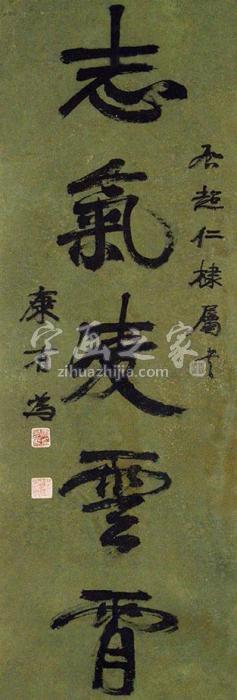 君超仁棣屬書
志氣陵雲霄
康有為
字画之家
zihuazhijia.com